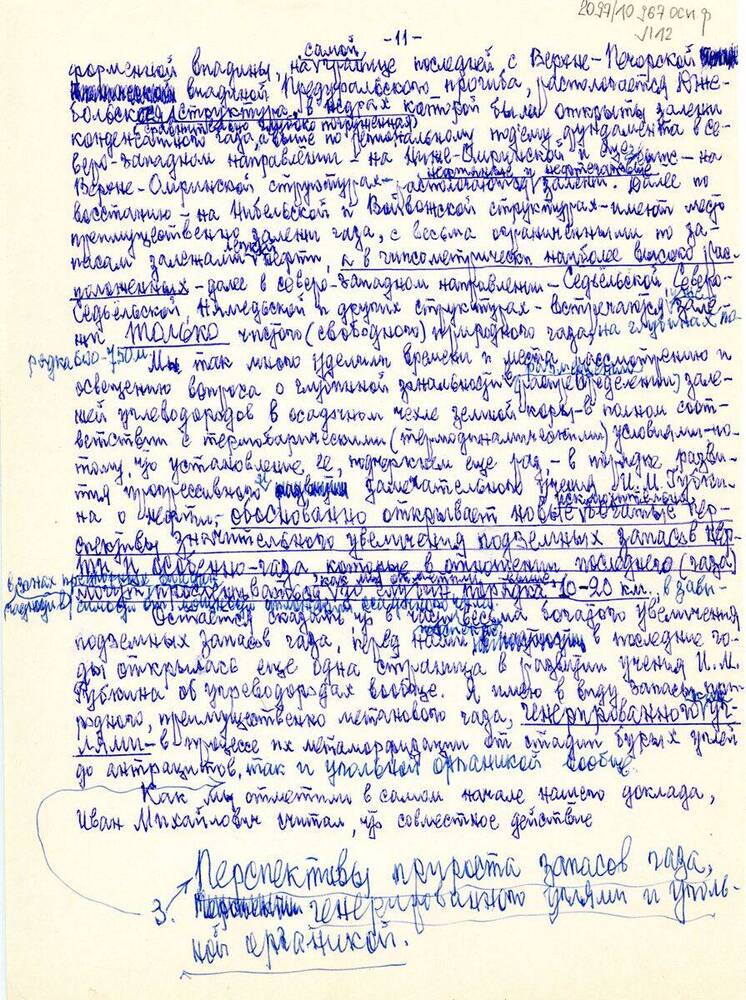 2097/10 967 осн.ф
л112
-11-
форменной впадины, на самой границе последней с Верхне-Печорской
впадиной Предуральского прогиба, располагается Джебольская структура, в недрах которой были открыты залежи
конденсатного газа (сравнительно глубоко погруженная), а выше по региональному подъему фундамента в се-
веро-западном направлении - на Нижне-Омринской и еще выше - на
Верхне-Омринской структурах - располагаются нефтяные и нефтегазовые залежи. Далее по
восстанию - на Нибельской и Войвожской структурах - имеют место
преимущественно залежи газа, с весьма ограниченными по за-
пасам залежами легкой нефти, а в гипсометрически наиболее высоко рас-
положенных - далее в северо-западном направлении - Седьельской, Северо-
Седьёльской, Нямедьской и других структурах - встречаются уже зале-
жи только чистого (свободного) природного газа, на глубинах по-
рядка 600-750 м.
Мы так много уделили времени и места рассмотрению и
освещению вопроса о глубинной зональности размещения (распределения) зале-
жей углеводородов в осадочном чехле земной коры - в полном соот-
ветствии с термобарическими (термодинамическими) условиями - по-
тому, что установление ее, подчеркнем еще раз, - в порядке разви-
тия прогрессивного замечательного учения И.М. Губки-
на о нефти, - обоснованно открывает новые исключительно богатые пер-
спективы значительного увеличения подземных запасов неф-
ти и особенно - газа, которые в отношении последнего (газа)
могут прослеживаться, как мы отметили выше, до глубин порядка 10-20 км., в зави-
симости от мощности отложений осадочного чехла.
Остается сказать, что в части весьма богатого увеличения
подземных запасов газа, перед нами в последние го-
ды открылась еще одна страница в развитии учения И.М.
Губкина об углеводородах вообще. Я имею в виду запасы при-
родного, преимущественно метанового газа, генерированного как уг-
лями - в процессе их метаморфизации от стадии бурых углей
до антрацитов, так и угольной органикой вообще.
Как мы отметили в самом начале нашего доклада,
Иван Михайлович считал, что совместное действие
3. Перспективы прироста запасов газа,
генерированного углями и уголь-
ной органикой.